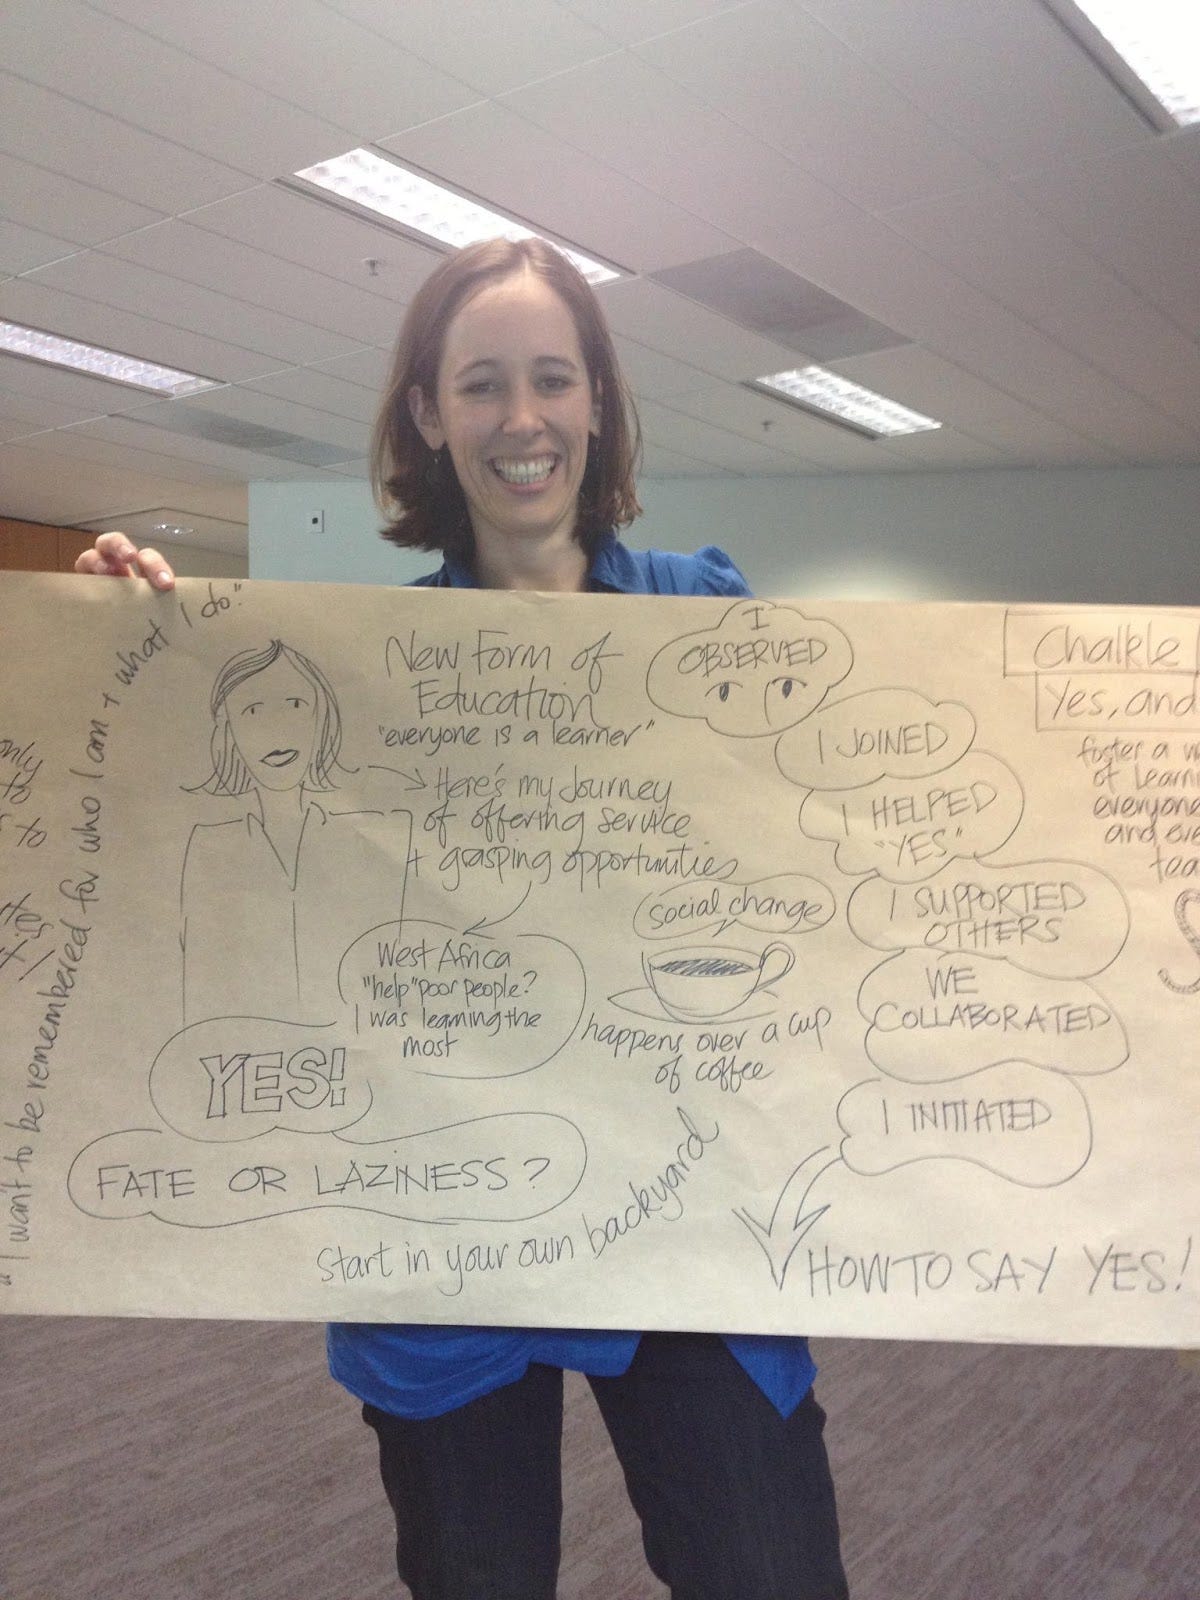 "I want to be remembered for who I am + what I do."
New Form of
Education
"everyone is a learner"
Here's my Journey
of offering service
+ grasping opportunities
West Africa
"help" poor people?
I was learning the
most
YES!
FATE OR LAZINESS?
Start in your own backyard
Social change
happens over a cup
of coffee
I
OBSERVED
I JOINED
I HELPED
"YES"
I SUPPORTED
OTHERS
WE
COLLABORATED
I INITIATED
HOW TO SAY YES!
Chalkle
Yes, and
foster a
of
everyone
and
only
to
to